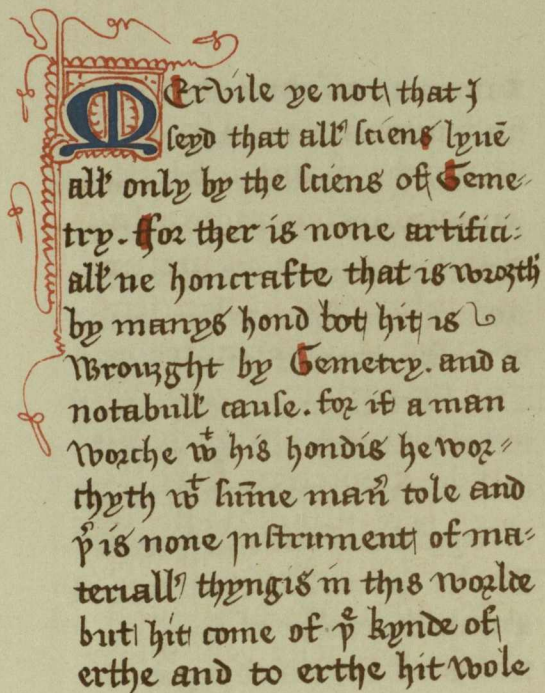 MErvile ye not that I
seyd that all sciens lyue̅
all only by the sciens of Geme-
try. ffor ther is none artifici-
all ne honcrafte that is wroȝth
by manys hond bot hit is
wrouȝght by Gemetry. and a
notabull cause. for if a man
worche wᵗ his hondis he wor-
chyth wᵗ su̅me man̅ tole and
þᵉ is none instrument of ma-
teriall thyngis in this worlde
but hit come of þᵉ kynde of
erthe and to erthe hit wole